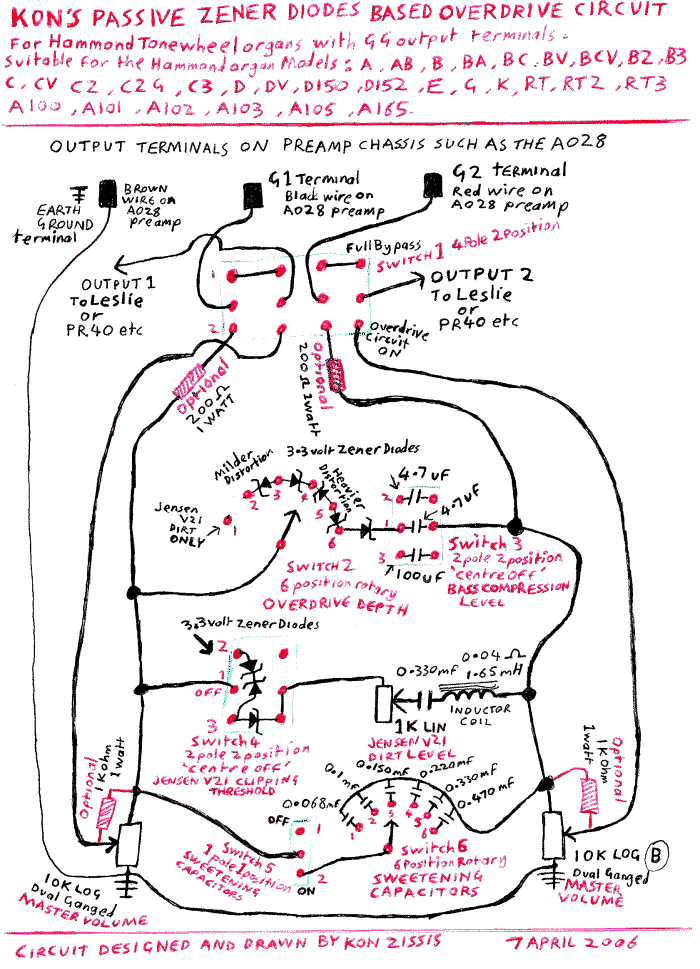 KON'S PASSIVE ZENER DIODES BASED OVERDRIVE CIRCUIT
For Hammond Tonewheel organs with GG output terminals.
Suitable for the Hammond organ Models: A, AB, B, BA, BC, BV, BCV, B2, B3
C, CV C2, C2G, C3, D, DV, D150, D152, E, G, K, RT, RT2, RT3
A100, A101, A102, A103, A105, A165.
OUTPUT TERMINALS ON PREAMP CHASSIS SUCH AS THE AO28
EARTH
GROUND
terminal
BROWN
WIRE ON
AO28
preamp
G1 Terminal
Black wire on
AO28 preamp
G2 TERMINAL
Red wire on
AO28 preamp
Full Bypass
SWITCH 1 4 Pole 2 Position
OUTPUT 1
To Leslie
or
PR40 etc
1
2
OUTPUT 2
To Leslie
or
PR40 etc
Overdrive
circuit
ON
Optional
200Ω
1 WATT
Optional
200Ω 1watt
3.3 volt Zener Diodes
Milder
Distortion
Heavier
Distortion
Jensen
V21
DIRT
ONLY
1
2
3
4
5
6
4.7 uF
2
4.7 uF
1
3
100 uF
SWITCH 2
6 position rotary
OVERDRIVE DEPTH
Switch 3
2 pole 2 position
'centre off'
BASS COMPRESSION
LEVEL
3.3 volt Zener Diodes
2
1
OFF
3
Switch 4
2 pole 2 position
'centre off'
JENSEN V21 CLIPPING
THRESHOLD
0.330mf
0.04 Ω
1.65mH
INDUCTOR
COIL
1K LIN
JENSEN V21
DIRT LEVEL
Optional
1K Ohm
1 watt
Optional
1K Ohm
1 watt
0.068mf
0.1mf
0.150mf
0.220mf
0.330mf
0.470mf
OFF
1
2
ON
1
2
3
4
5
6
Switch 5
1 pole 1 position
SWEETENING
CAPACITORS
Switch 6
6 Position Rotary
SWEETENING
CAPACITORS
10K LOG
Dual Ganged
MASTER VOLUME
10K LOG B
Dual Ganged
MASTER
VOLUME
CIRCUIT DESIGNED AND DRAWN BY KON ZISSIS 7 APRIL 2006